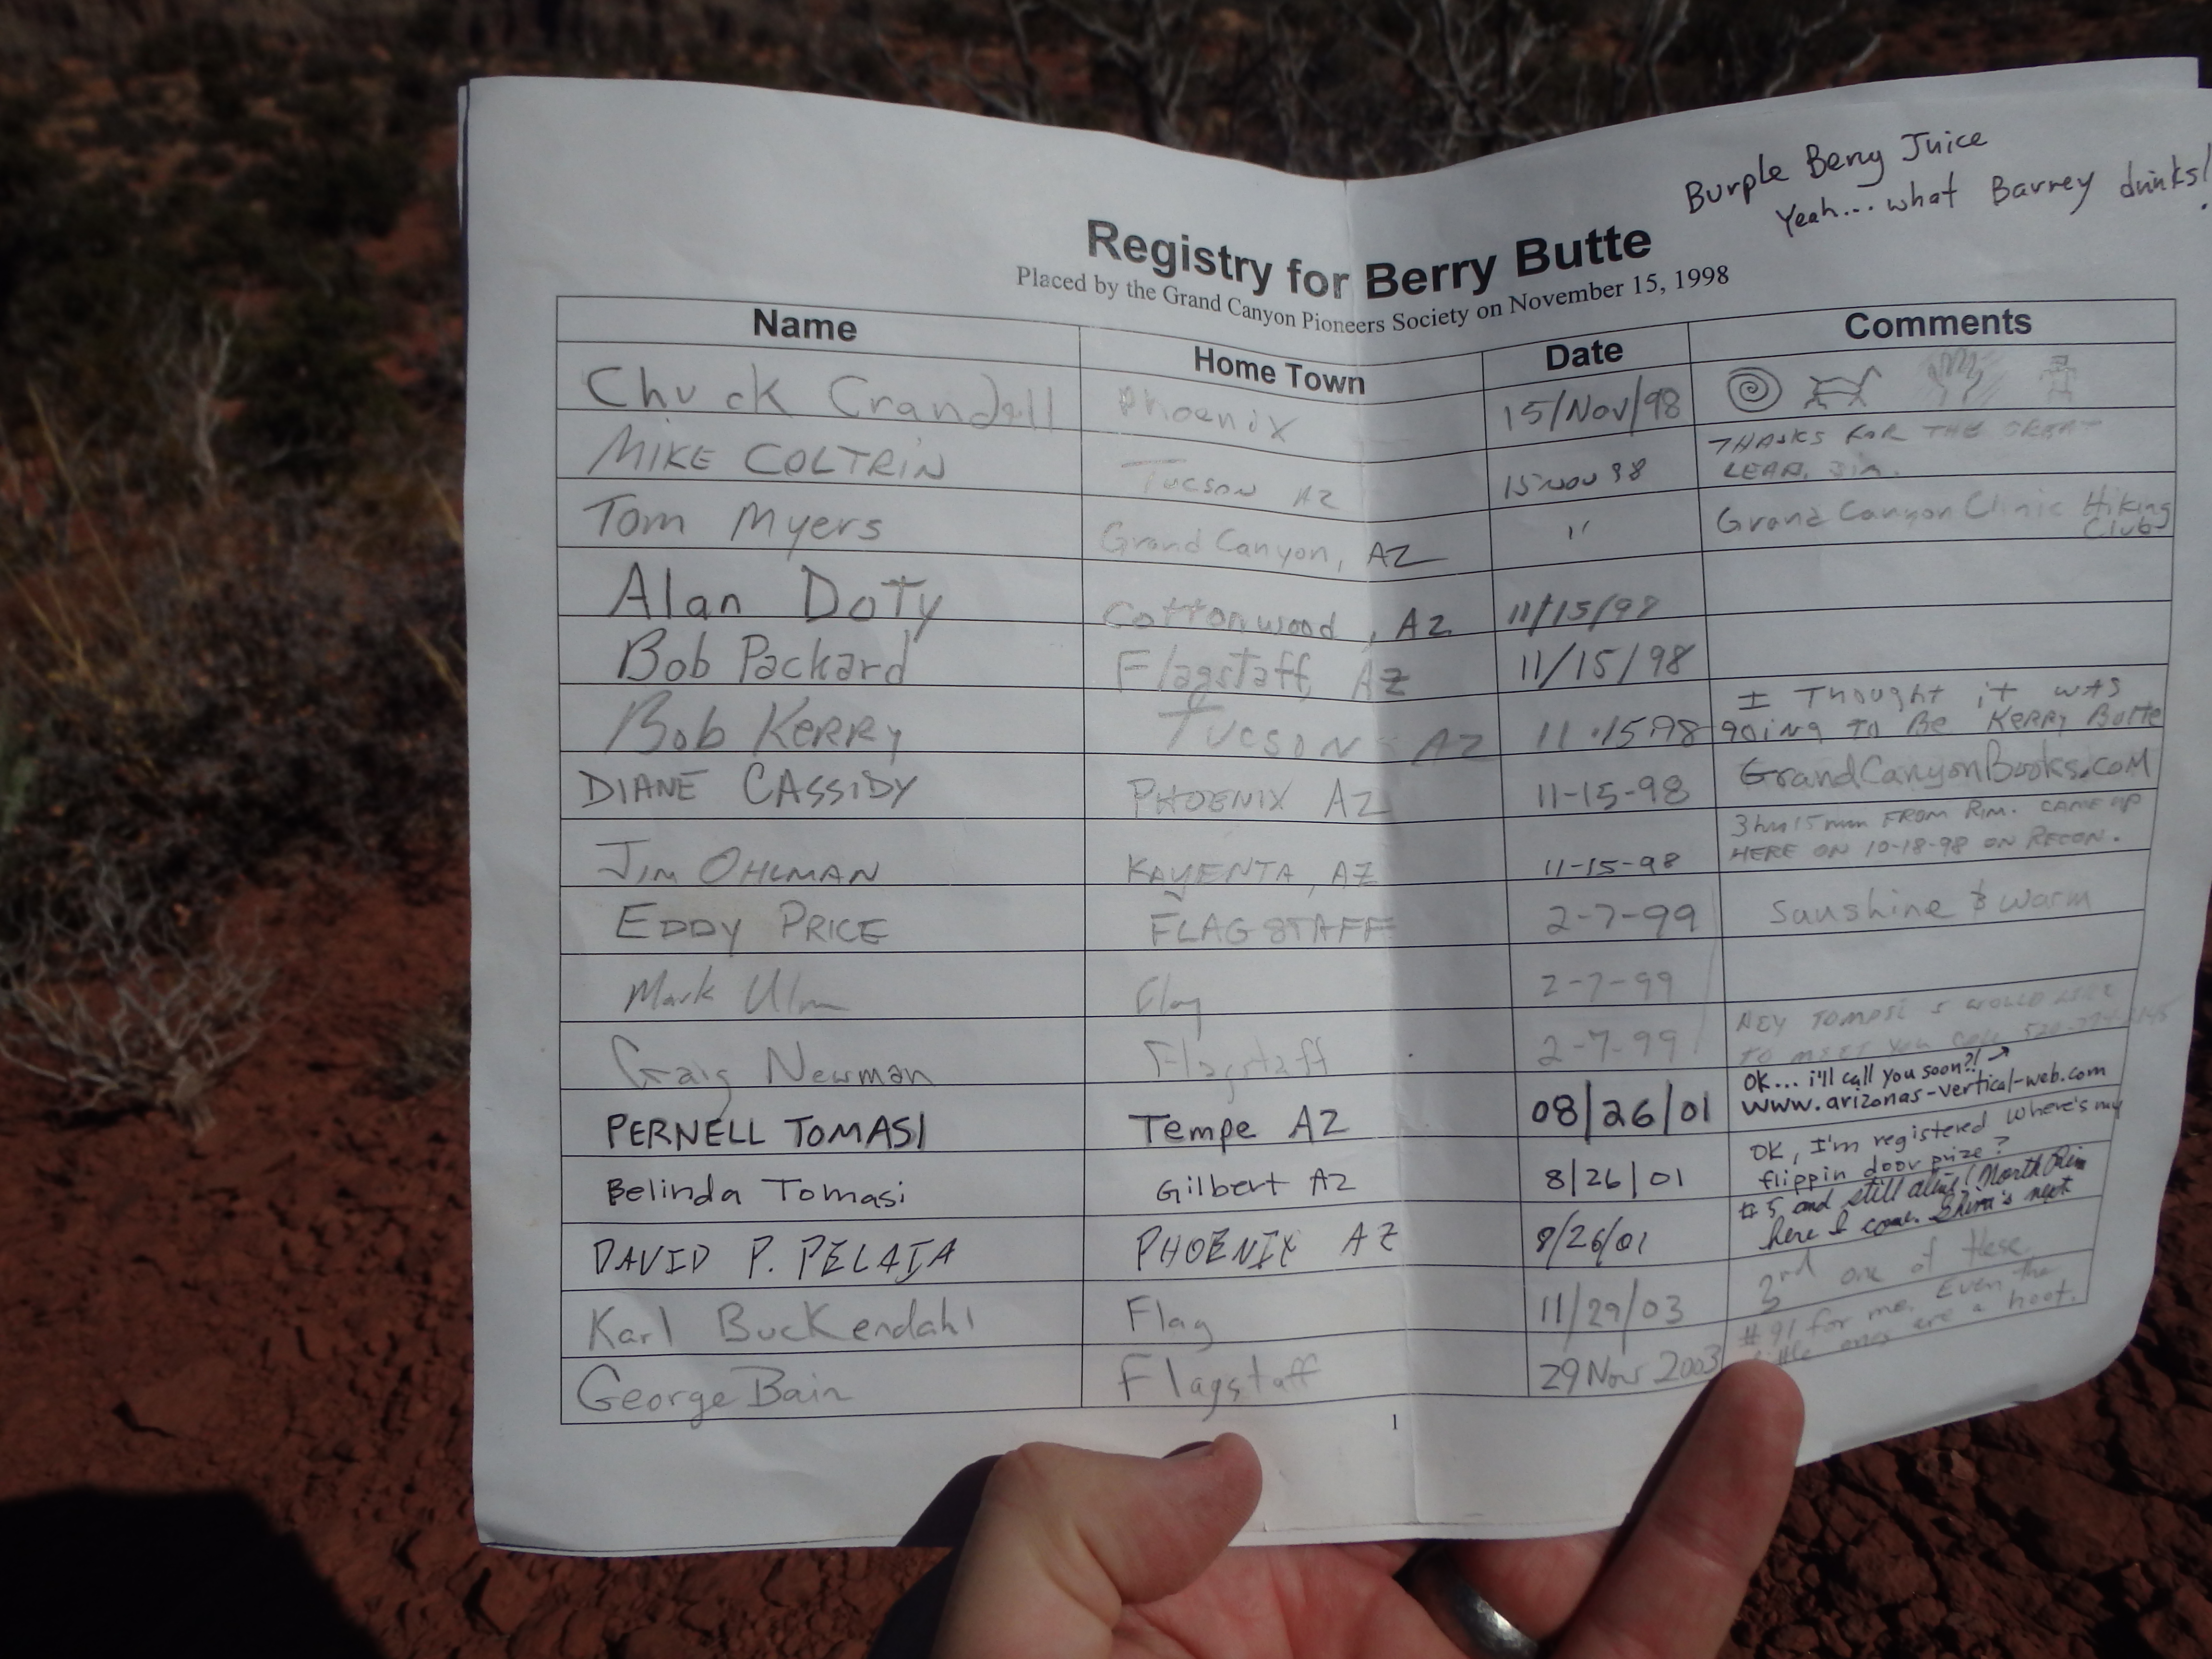 Burple Berry Juice
Yeah... what Barney drinks!
Registry for Berry Butte
Placed by the Grand Canyon Pioneers Society on November 15, 1998
Name Home Town Date Comments
Chuck Crandell Phoenix 15/Nov/98
MIKE COLTRIN Tucson AZ 15 NOV 98 THANKS FOR THE GREAT
LEAD, JIM.
Tom Myers Grand Canyon, AZ " Grand Canyon Clinic Hiking
Club
Alan Doty Cottonwood, AZ 11/15/98
Bob Packard Flagstaff, AZ 11/15/98
Bob KERRY TUCSON AZ 11·15·98 I Thought it was
going to Be Kerry Butte
DIANE CASSIDY PHOENIX AZ 11-15-98 GrandCanyonBooks.com
JIM OHLMAN KAYENTA, AZ 11-15-98 3 hrs 15 min FROM RIM. CAME UP
HERE ON 10-18-98 ON RECON.
EDDY PRICE FLAGSTAFF 2-7-99 Sunshine & warm
Mark Ulm Flag 2-7-99
Craig Newman Flagstaff 2-7-99 HEY TOMASI I WOULD LIKE
TO MEET YOU CALL
PERNELL TOMASI Tempe AZ 08/26/01 OK... i'll call you soon?!
www.arizonas-vertical-web.com
Belinda Tomasi Gilbert AZ 8/26/01 OK, I'm registered where's my
flippin door prize?
DAVID P. PELAIA PHOENIX AZ 8/26/01 #5 and still alive! North Rim
here I come. Shiva's next
Karl Buckendahl Flag 11/29/03 3rd one of these
George Bain Flagstaff 29 Nov 2003 #91 for me. Even the
little ones are a hoot.
1